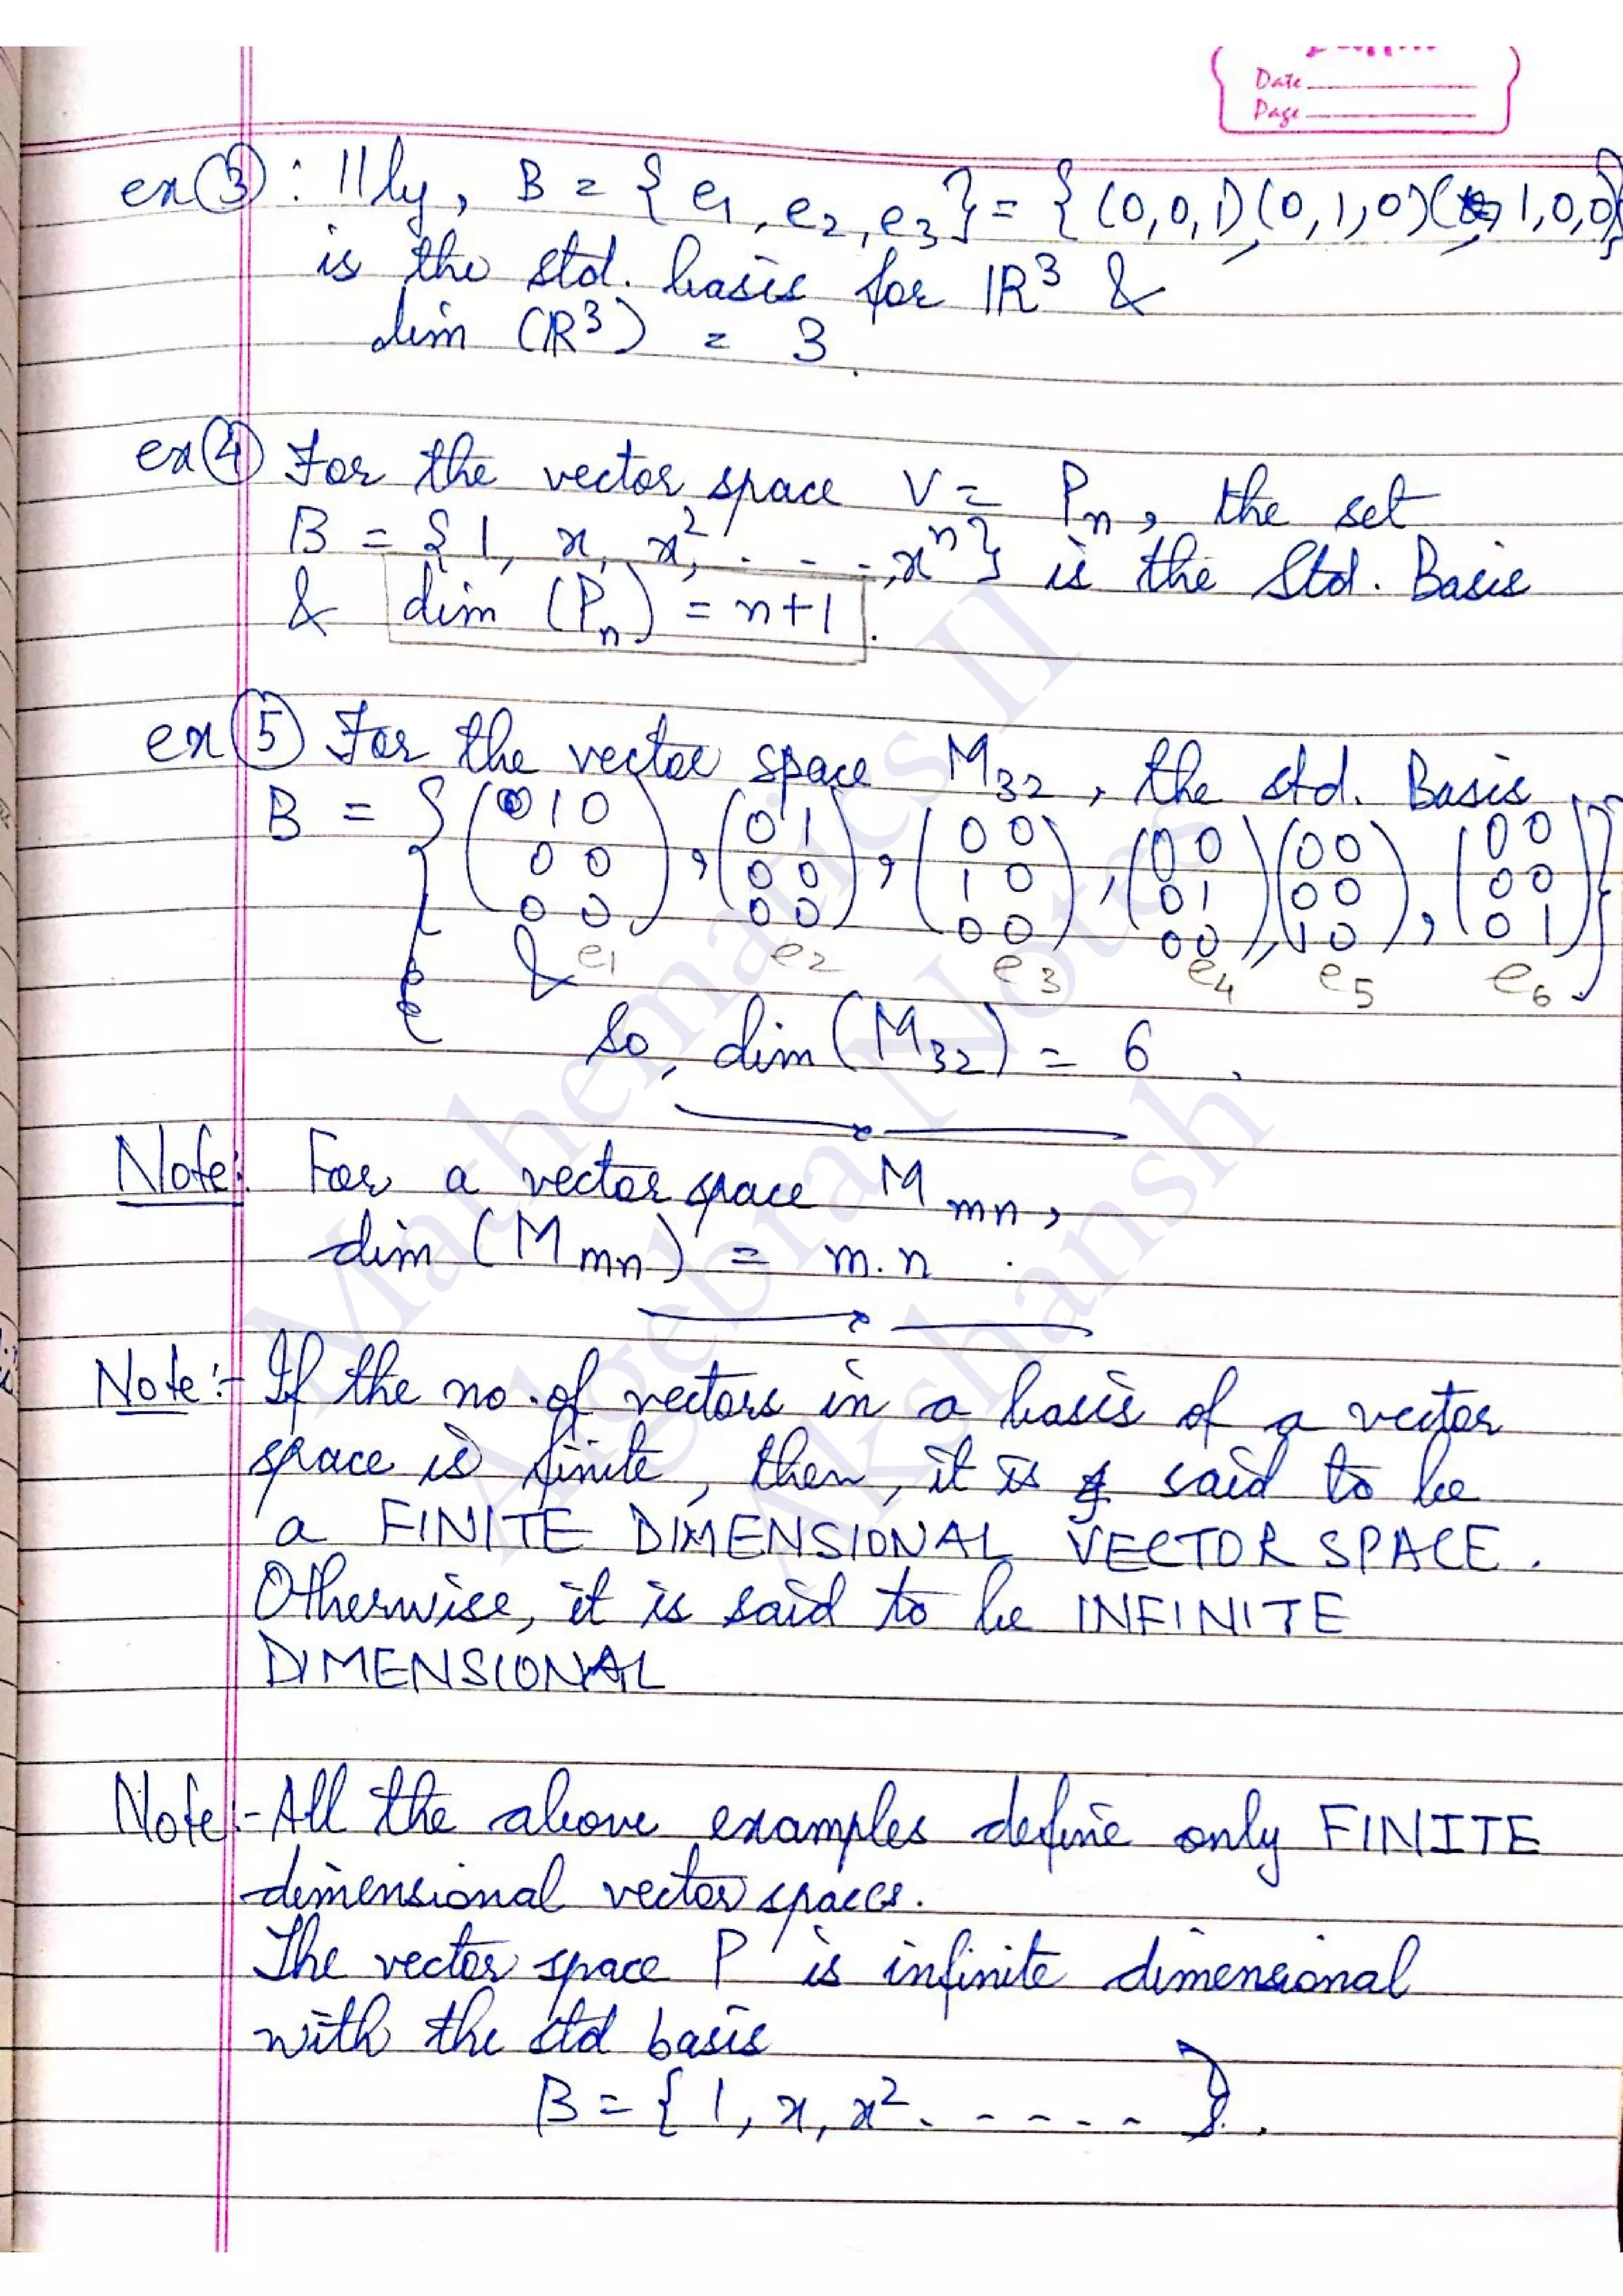 Date
Page
ex ③ : lly, B = { e1, e2, e3 } = { (0,0,1), (0,1,0), (1,0,0) }
is the std. basis for IR³ &
dim (IR³) = 3.
ex ④ For the vector space V = Pn, the set
B = { 1, x, x², . - - ., xⁿ } is the Std. Basis
& dim (Pn) = n+1.
ex ⑤ For the vector space M32, the std. Basis
B = { ( 1 0 ), ( 0 1 ), ( 0 0 ), ( 0 0 ), ( 0 0 ), ( 0 0 )
0 0 0 0 1 0 0 1 0 0 0 0
0 0 0 0 0 0 0 0 1 0 0 1 }
& e1 e2 e3 e4 e5 e6
So, dim (M32) = 6.
Note: For a vector space Mmn,
dim (Mmn) = m.n.
Note:- If the no. of vectors in a basis of a vector
space is finite, then, it is said to be
a FINITE DIMENSIONAL VECTOR SPACE.
Otherwise, it is said to be INFINITE
DIMENSIONAL
Note:- All the above examples define only FINITE
dimensional vector spaces.
The vector space P is infinite dimensional
with the std basis
B = { 1, x, x² - - - - - - }.
Mathematics II
Algebra Notes
Akshansh